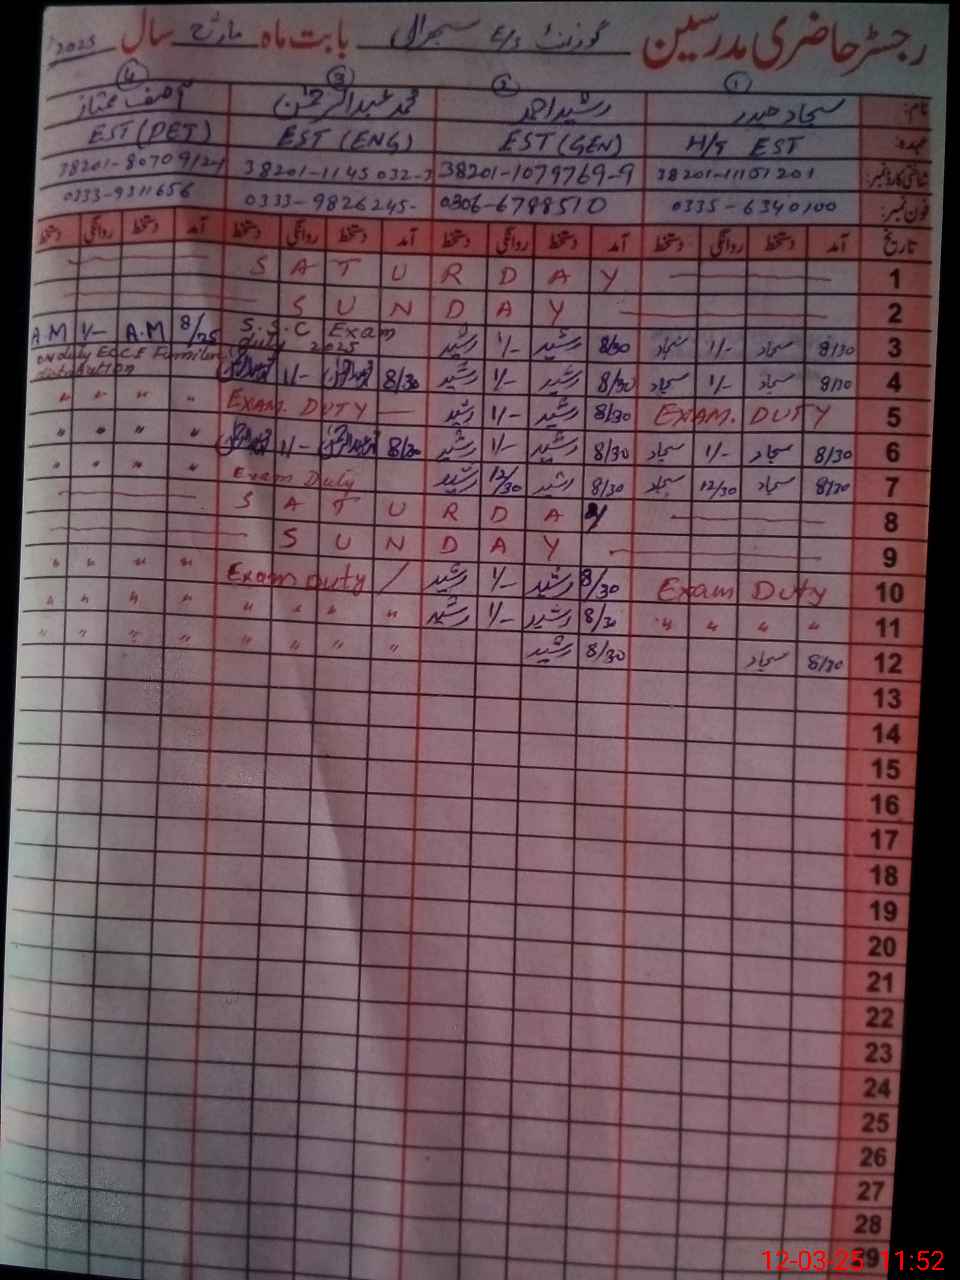 رجسٹر حاضری مدرسین گورنمنٹ E/S سجرال بابت ماہ مارچ سال 2025
1 2 3 4
نام: سجاد حیدر رشید احمد محمد عبدالرحمٰن آصف ممتاز
عہدہ: H/T EST EST (GEN) EST (ENG) EST (PET)
شناختی کارڈ نمبر: 38201-1079769-9 38201-1145032-3
فون نمبر: 0335-6340100 0306-6788510 0333-9826245- 0333-9311656
تاریخ آمد دستخط روانگی دستخط آمد دستخط روانگی دستخط آمد دستخط روانگی دستخط آمد دستخط روانگی دستخط
1 S A T U R D A Y
2 S U N D A Y
3 8/30 سجاد 1/- سجاد 8/30 رشید 1/- رشید S.S.C Exam duty 2025 8/25 A.M 1/- A.M
4 8/30 سجاد 1/- سجاد 8/30 رشید 1/- رشید 8/30 1/- on duty distribution
5 EXAM. DUTY 8/30 رشید 1/- رشید EXAM. DUTY " " " "
6 8/30 سجاد 1/- سجاد 8/30 رشید 1/- رشید 8/30 1/- " " " "
7 8/30 سجاد 12/30 سجاد 8/30 رشید 12/30 رشید Exam Duty " " " "
8 S A T U R D A Y
9 S U N D A Y
10 Exam Duty 8/30 رشید 1/- رشید Exam Duty " " " "
11 " " " " 8/30 رشید 1/- رشید " " " " " " " "
12 8/30 سجاد 8/30 رشید " " " " " " " "
13
14
15
16
17
18
19
20
21
22
23
24
25
26
27
28
29
12-03-25 11:52